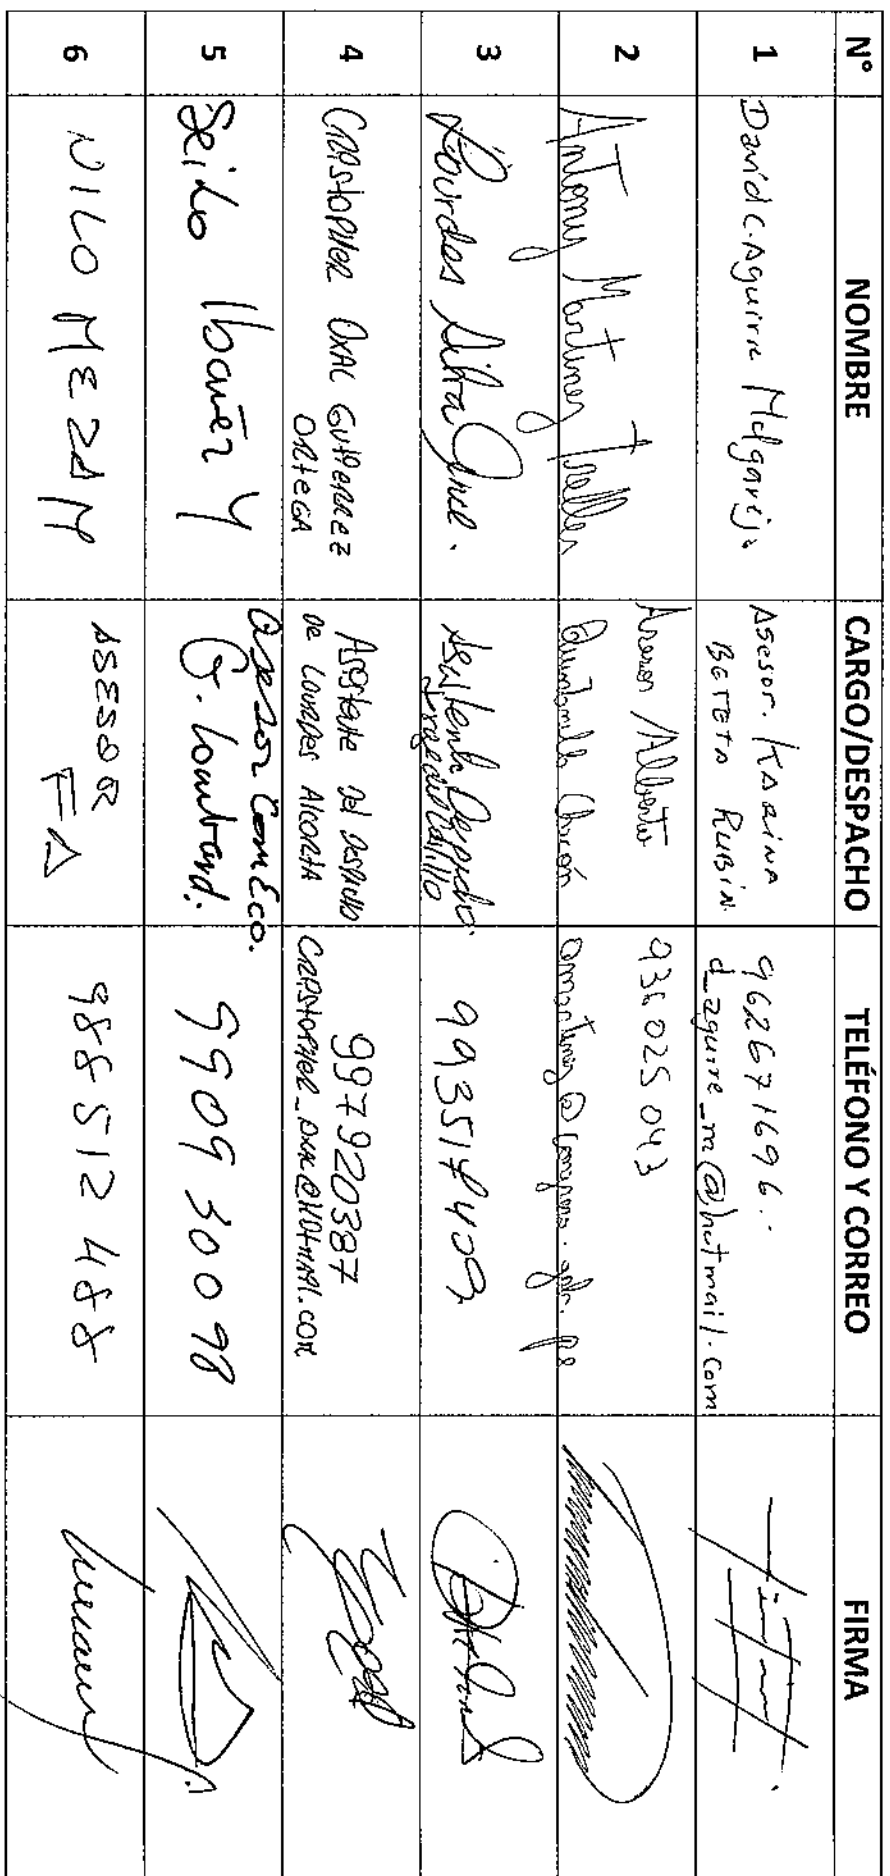 N° NOMBRE CARGO/DESPACHO TELÉFONO Y CORREO FIRMA
1 David C. Aguirre Melgarejo
Asesor. KARINA
BETETA RUBIN.
962671696..
d_aguirre_m@hotmail.com
2 Antony Martinez Trelles
Asesor Alberto
Quintanilla Chacón
936025043
amartinez@congreso.gob.pe
3 Lourdes Silva
Asistente Despacho.
del Castillo
4 CRISTOPHER OXAL GUTIERREZ
ORTEGA
Asistente del despacho
De LOURDES Alcorta
997920387
5 Ibañez Y
asesor Com Eco.
G. Lombard.
990930098
6 NILO MEZA M
ASESOR
FA
988512488